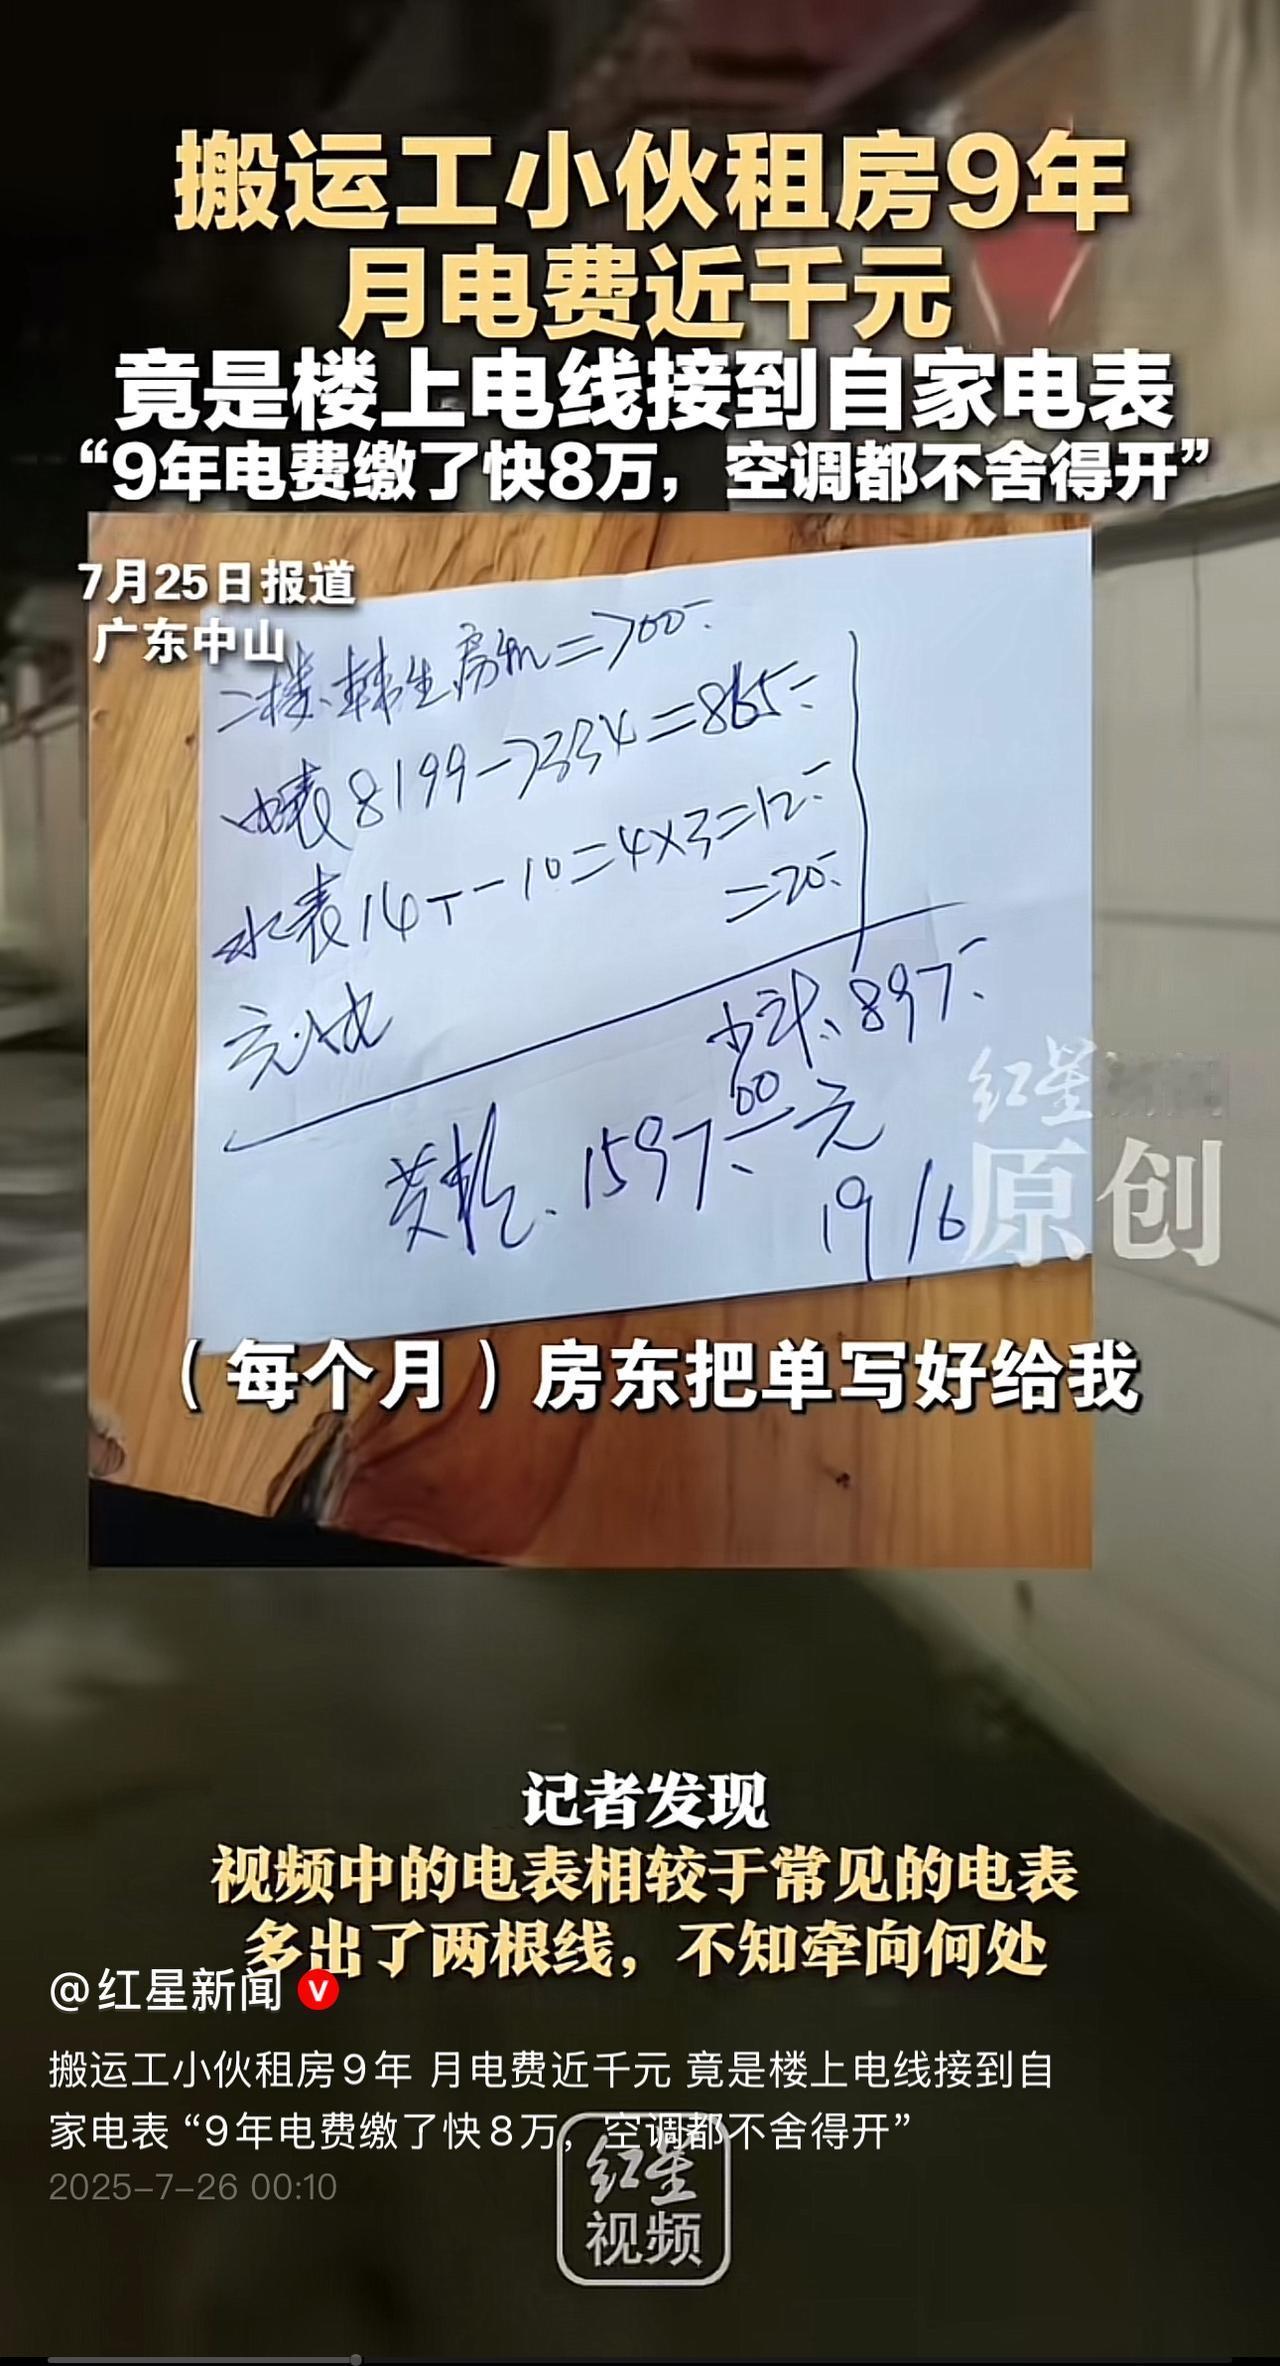 搬运工小伙租房9年
月电费近千元
竟是楼上电线接到自家电表
“9年电费缴了快8万，空调都不舍得开”
7月25日报道
广东中山
二楼.韩生房租=700
电表8199-7334=865
水表14T-10=4×3=12
=20
小计.897
1597.00元
19/6
红星新闻
原创
（每个月）房东把单写好给我
记者发现
视频中的电表相较于常见的电表
多出了两根线，不知牵向何处
@红星新闻
搬运工小伙租房9年 月电费近千元 竟是楼上电线接到自
家电表 “9年电费缴了快8万，空调都不舍得开”
2025-7-26 00:10
红星
视频